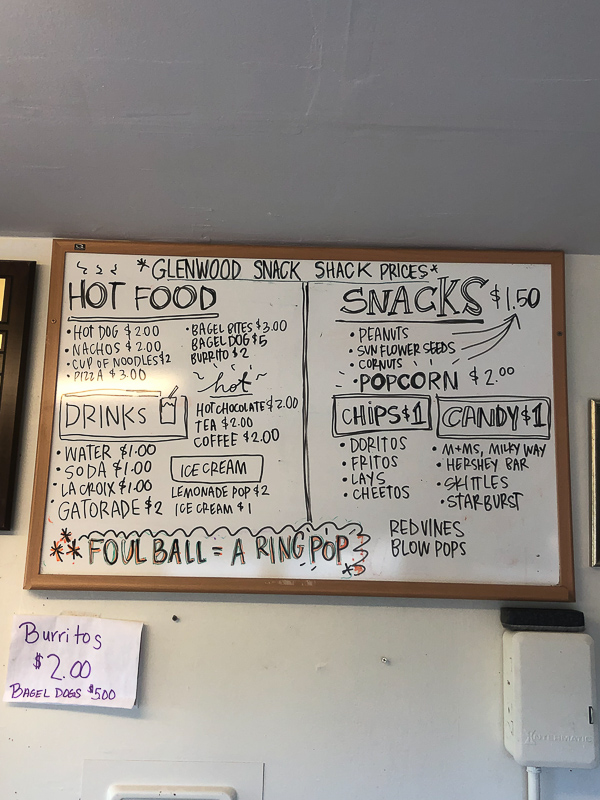 *GLENWOOD SNACK SHACK PRICES*
HOT FOOD
• HOT DOG $2.00
• NACHOS $2.00
• CUP OF NOODLES $2
• PIZZA $3.00
• BAGEL BITES $3.00
BAGEL DOG $5
BURRITO $2
hot
HOT CHOCOLATE $2.00
TEA $2.00
COFFEE $2.00
DRINKS
• WATER $1.00
• SODA $1.00
• LA CROIX $1.00
• GATORADE $2
ICE CREAM
LEMONADE POP $2
ICE CREAM $1
SNACKS $1.50
• PEANUTS
• SUNFLOWER SEEDS
• CORNUTS
• POPCORN $2.00
CHIPS $1
• DORITOS
• FRITOS
• LAYS
• CHEETOS
CANDY $1
• M+MS, MILKY WAY
• HERSHEY BAR
• SKITTLES
• STARBURST
REDVINES
BLOW POPS
** FOUL BALL = A RING POP *
Burritos
$2.00
BAGEL DOGS $5.00
INTERMATIC